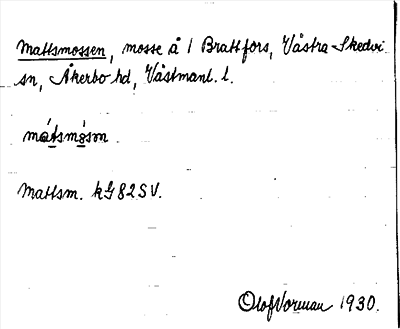 Mattsmossen, mosse å 1 Brattfors, Västra Skedvi
sn, Åkerbo hd, Västmanl. l.
mátsmòsən
Mattsm. kG 82 SV.
Olof Vorman 1930.